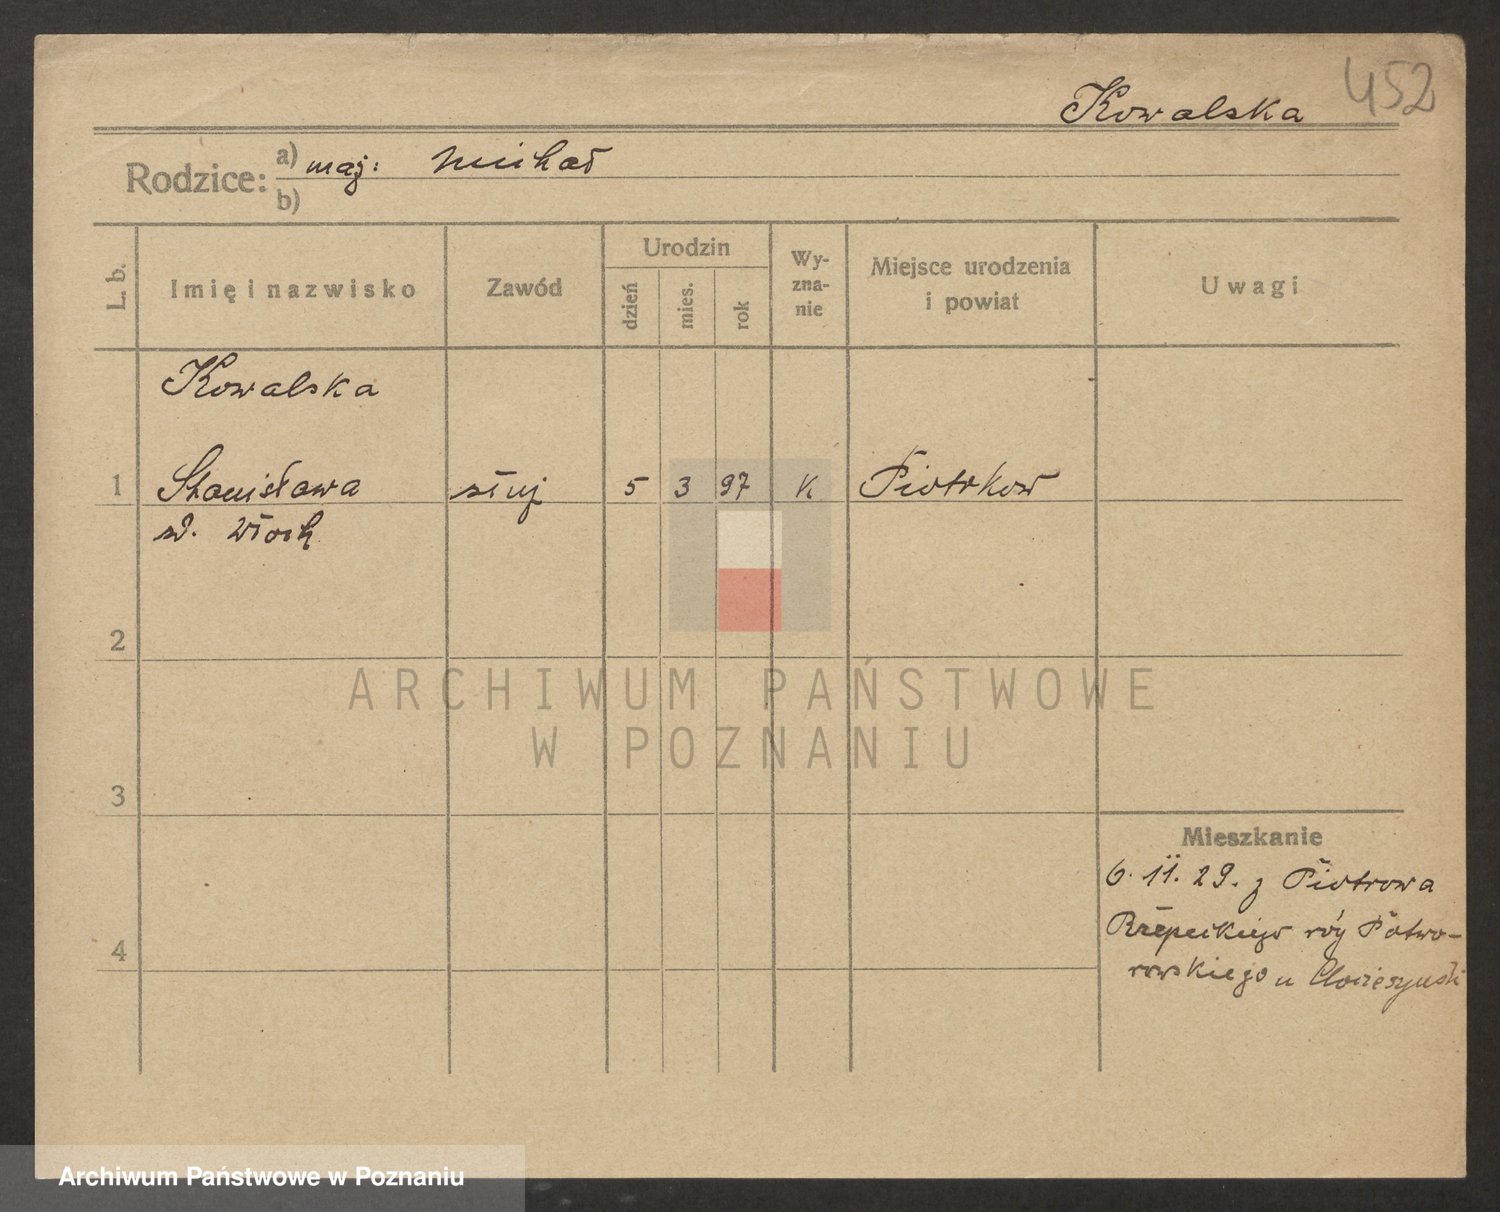 452
Kowalska
Rodzice: a) mąż: Michał
b)
L. b. Imię i nazwisko Zawód Urodzin dzień mies. rok Wy-zna-nie Miejsce urodzenia i powiat Uwagi
Kowalska
1 Stanisława służ 5 3 97 K Piotrków
zd. Włoch
2
ARCHIWUM PAŃSTWOWE
W POZNANIU
3
Mieszkanie
6. 11. 29. z Piotrowa
Rzepeckiego róg Potwo-
4
rowskiego u
Archiwum Państwowe w Poznaniu